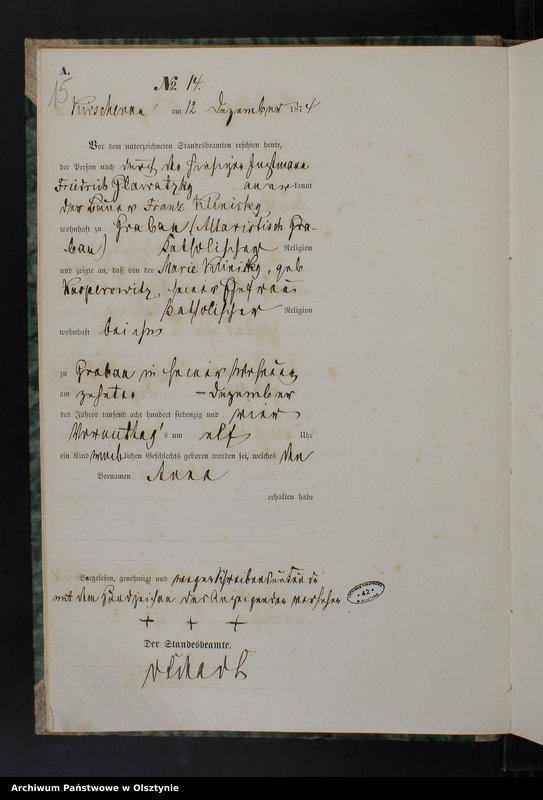 A.
15
No. 14.
Kirschenau am 12 Dezember 1874
Vor dem unterzeichneten Standesbeamten erschien heute,
der Person nach durch den hiesigen
Friedrich anerkannt
der Franz Klinicky
wohnhaft zu Graban (Gra-
ban) katholischer Religion
und zeigte an, daß von der Marie Klinicky, geb
Kasperowitz, seiner Ehefrau
katholischer Religion
wohnhaft bei ihm
zu Graban in seiner Wohnung
am zehnten Dezember
des Jahres tausend acht hundert siebenzig und vier
Vormittag's um elf Uhr
ein Kind weiblichen Geschlechts geboren worden sei, welches den
Vornamen Anna
erhalten habe
Vorgelesen, genehmigt und wegen Schreibensunkunde
mit dem Handzeichen des Anzeigenden versehen
+ + +
42
Der Standesbeamte.
Archiwum Państwowe w Olsztynie